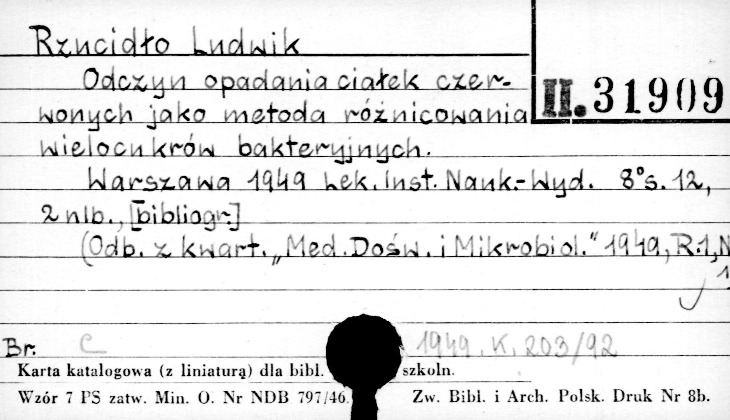 Rzucidło Ludwik
II. 31909
Odczyn opadania ciałek czer-
wonych jako metoda różnicowania
wielocukrów bakteryjnych.
Warszawa 1949 Lek. Inst. Nauk.-Wyd. 8° s. 12,
2 nlb., [bibliogr.]
(Odb. z kwart. „Med. Dośw. i Mikrobiol." 1949, R.1, N
Br. C 1949. K. 203/92
Karta katalogowa (z liniaturą) dla bibl. szkoln.
Wzór 7 PS zatw. Min. O. Nr NDB 797/46. Zw. Bibl. i Arch. Polsk. Druk Nr 8b.